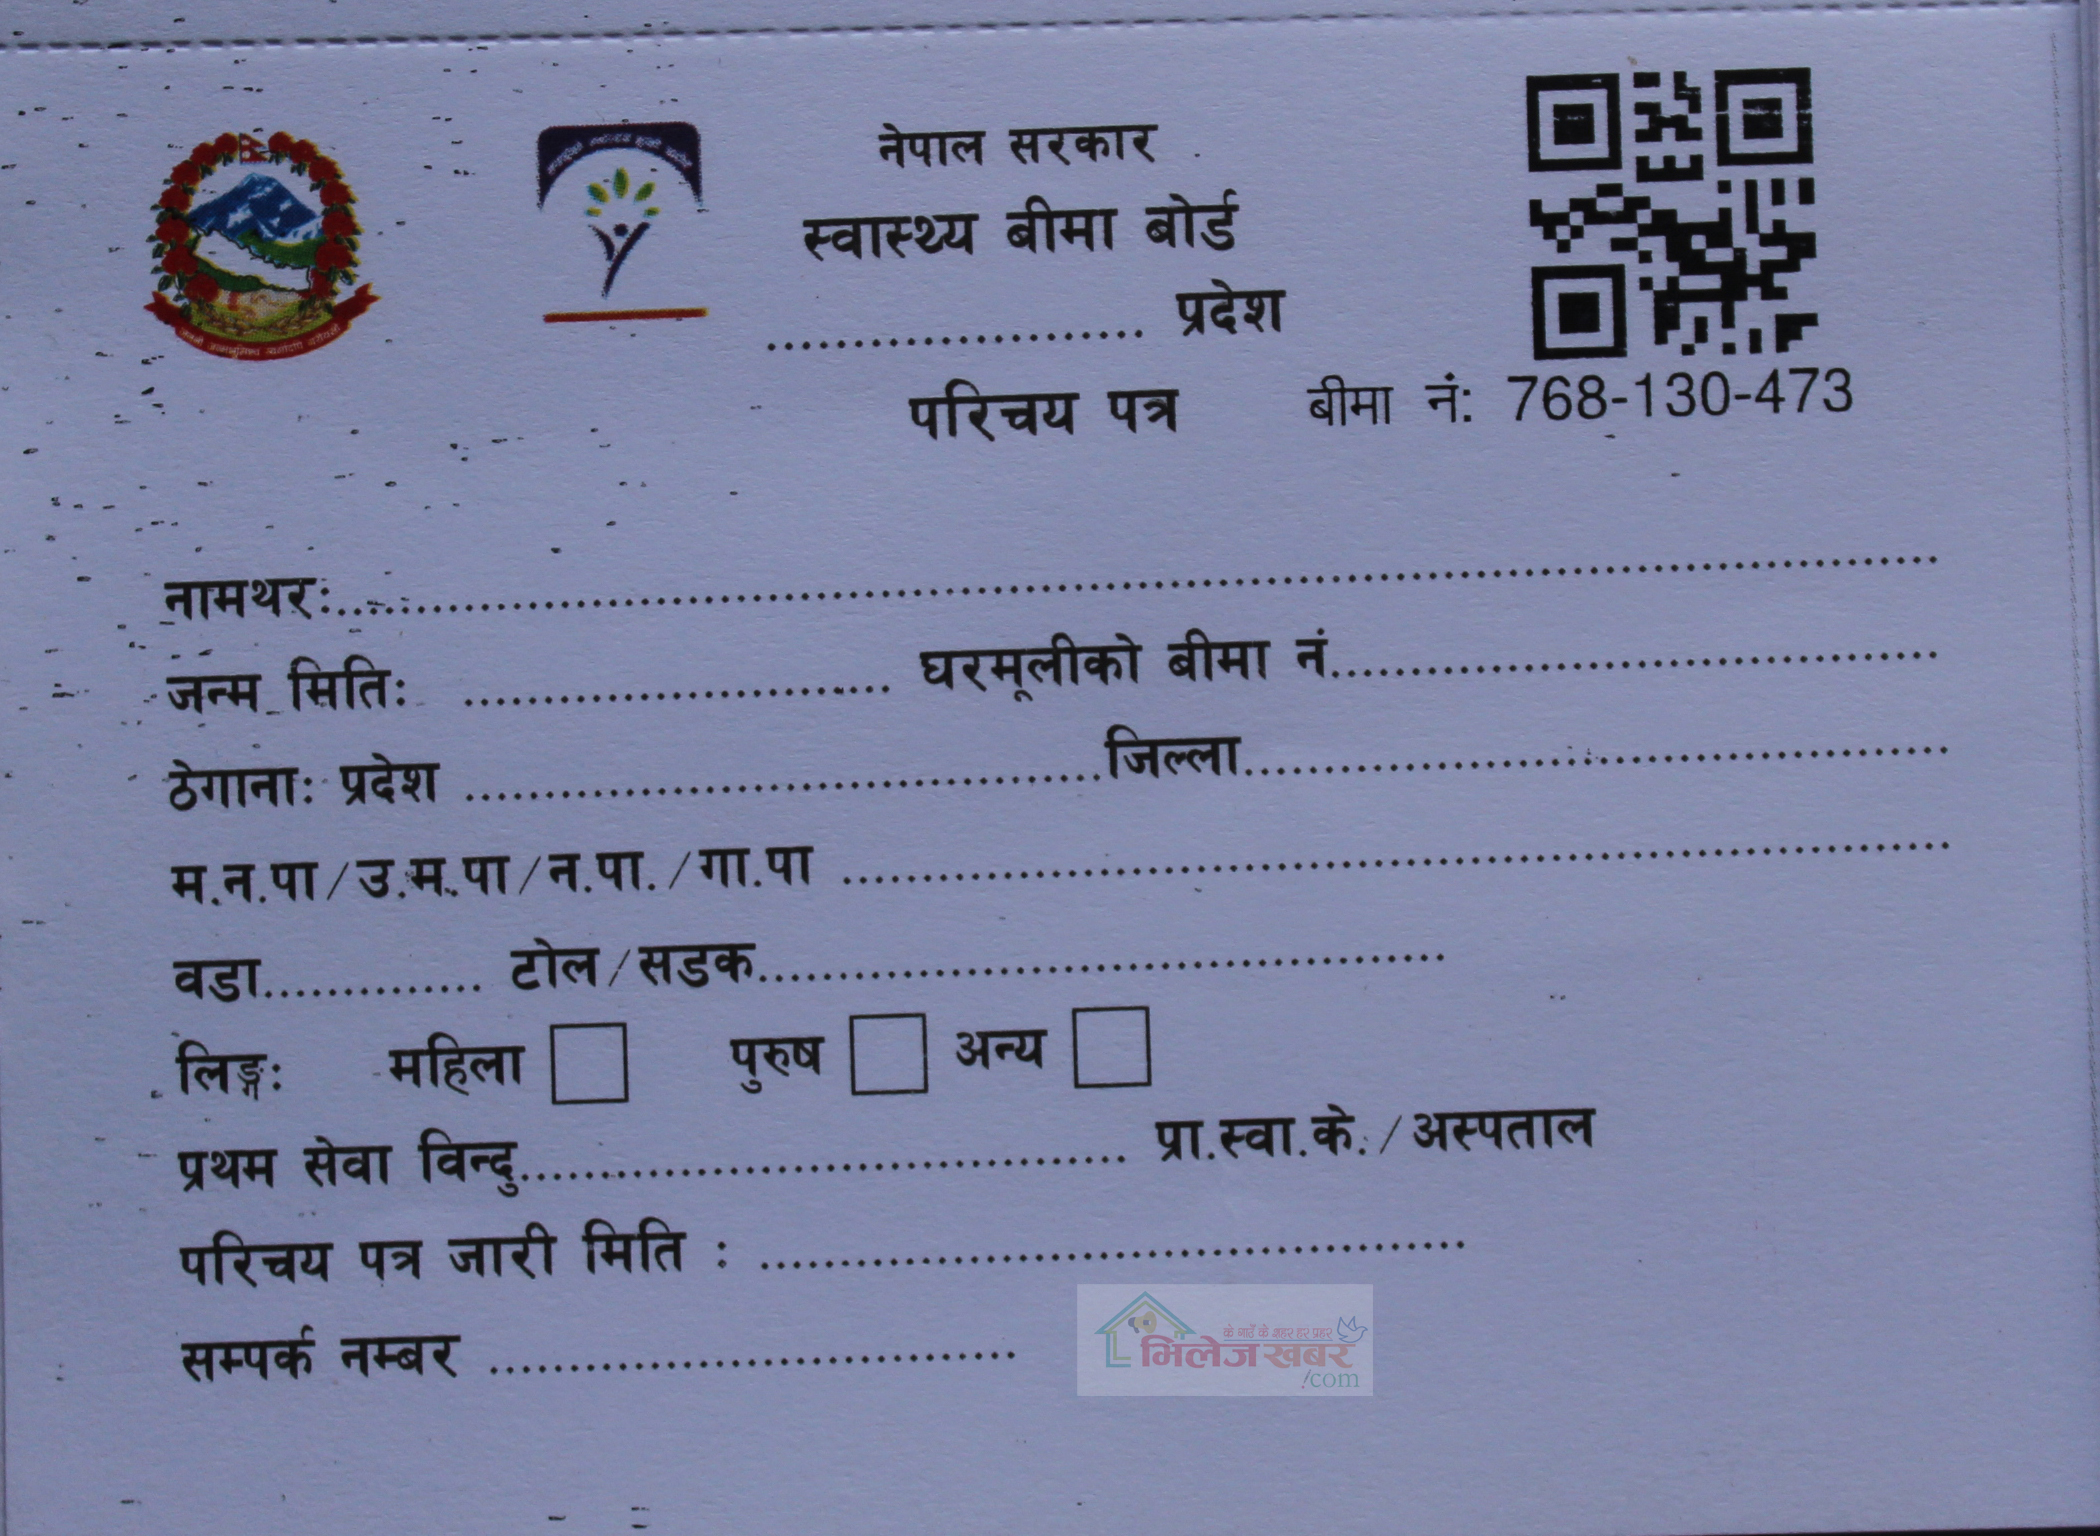 नेपाल सरकार
स्वास्थ्य बीमा बोर्ड
...................... प्रदेश
परिचय पत्र बीमा नं: 768-130-473
नामथर:....................................................................................
जन्म मिति: ........................... घरमूलीको बीमा नं.......................................
ठेगाना: प्रदेश ........................................जिल्ला.............................................
म.न.पा/उ.म.पा/न.पा./गा.पा ......................................................................
वडा.............. टोल/सडक............................................
लिङ्ग: महिला पुरुष अन्य
प्रथम सेवा विन्दु...................................... प्रा.स्वा.के./अस्पताल
परिचय पत्र जारी मिति : .............................................
सम्पर्क नम्बर ..................................
के गाउँ के शहर हर प्रहर
भिलेज खबर
.com